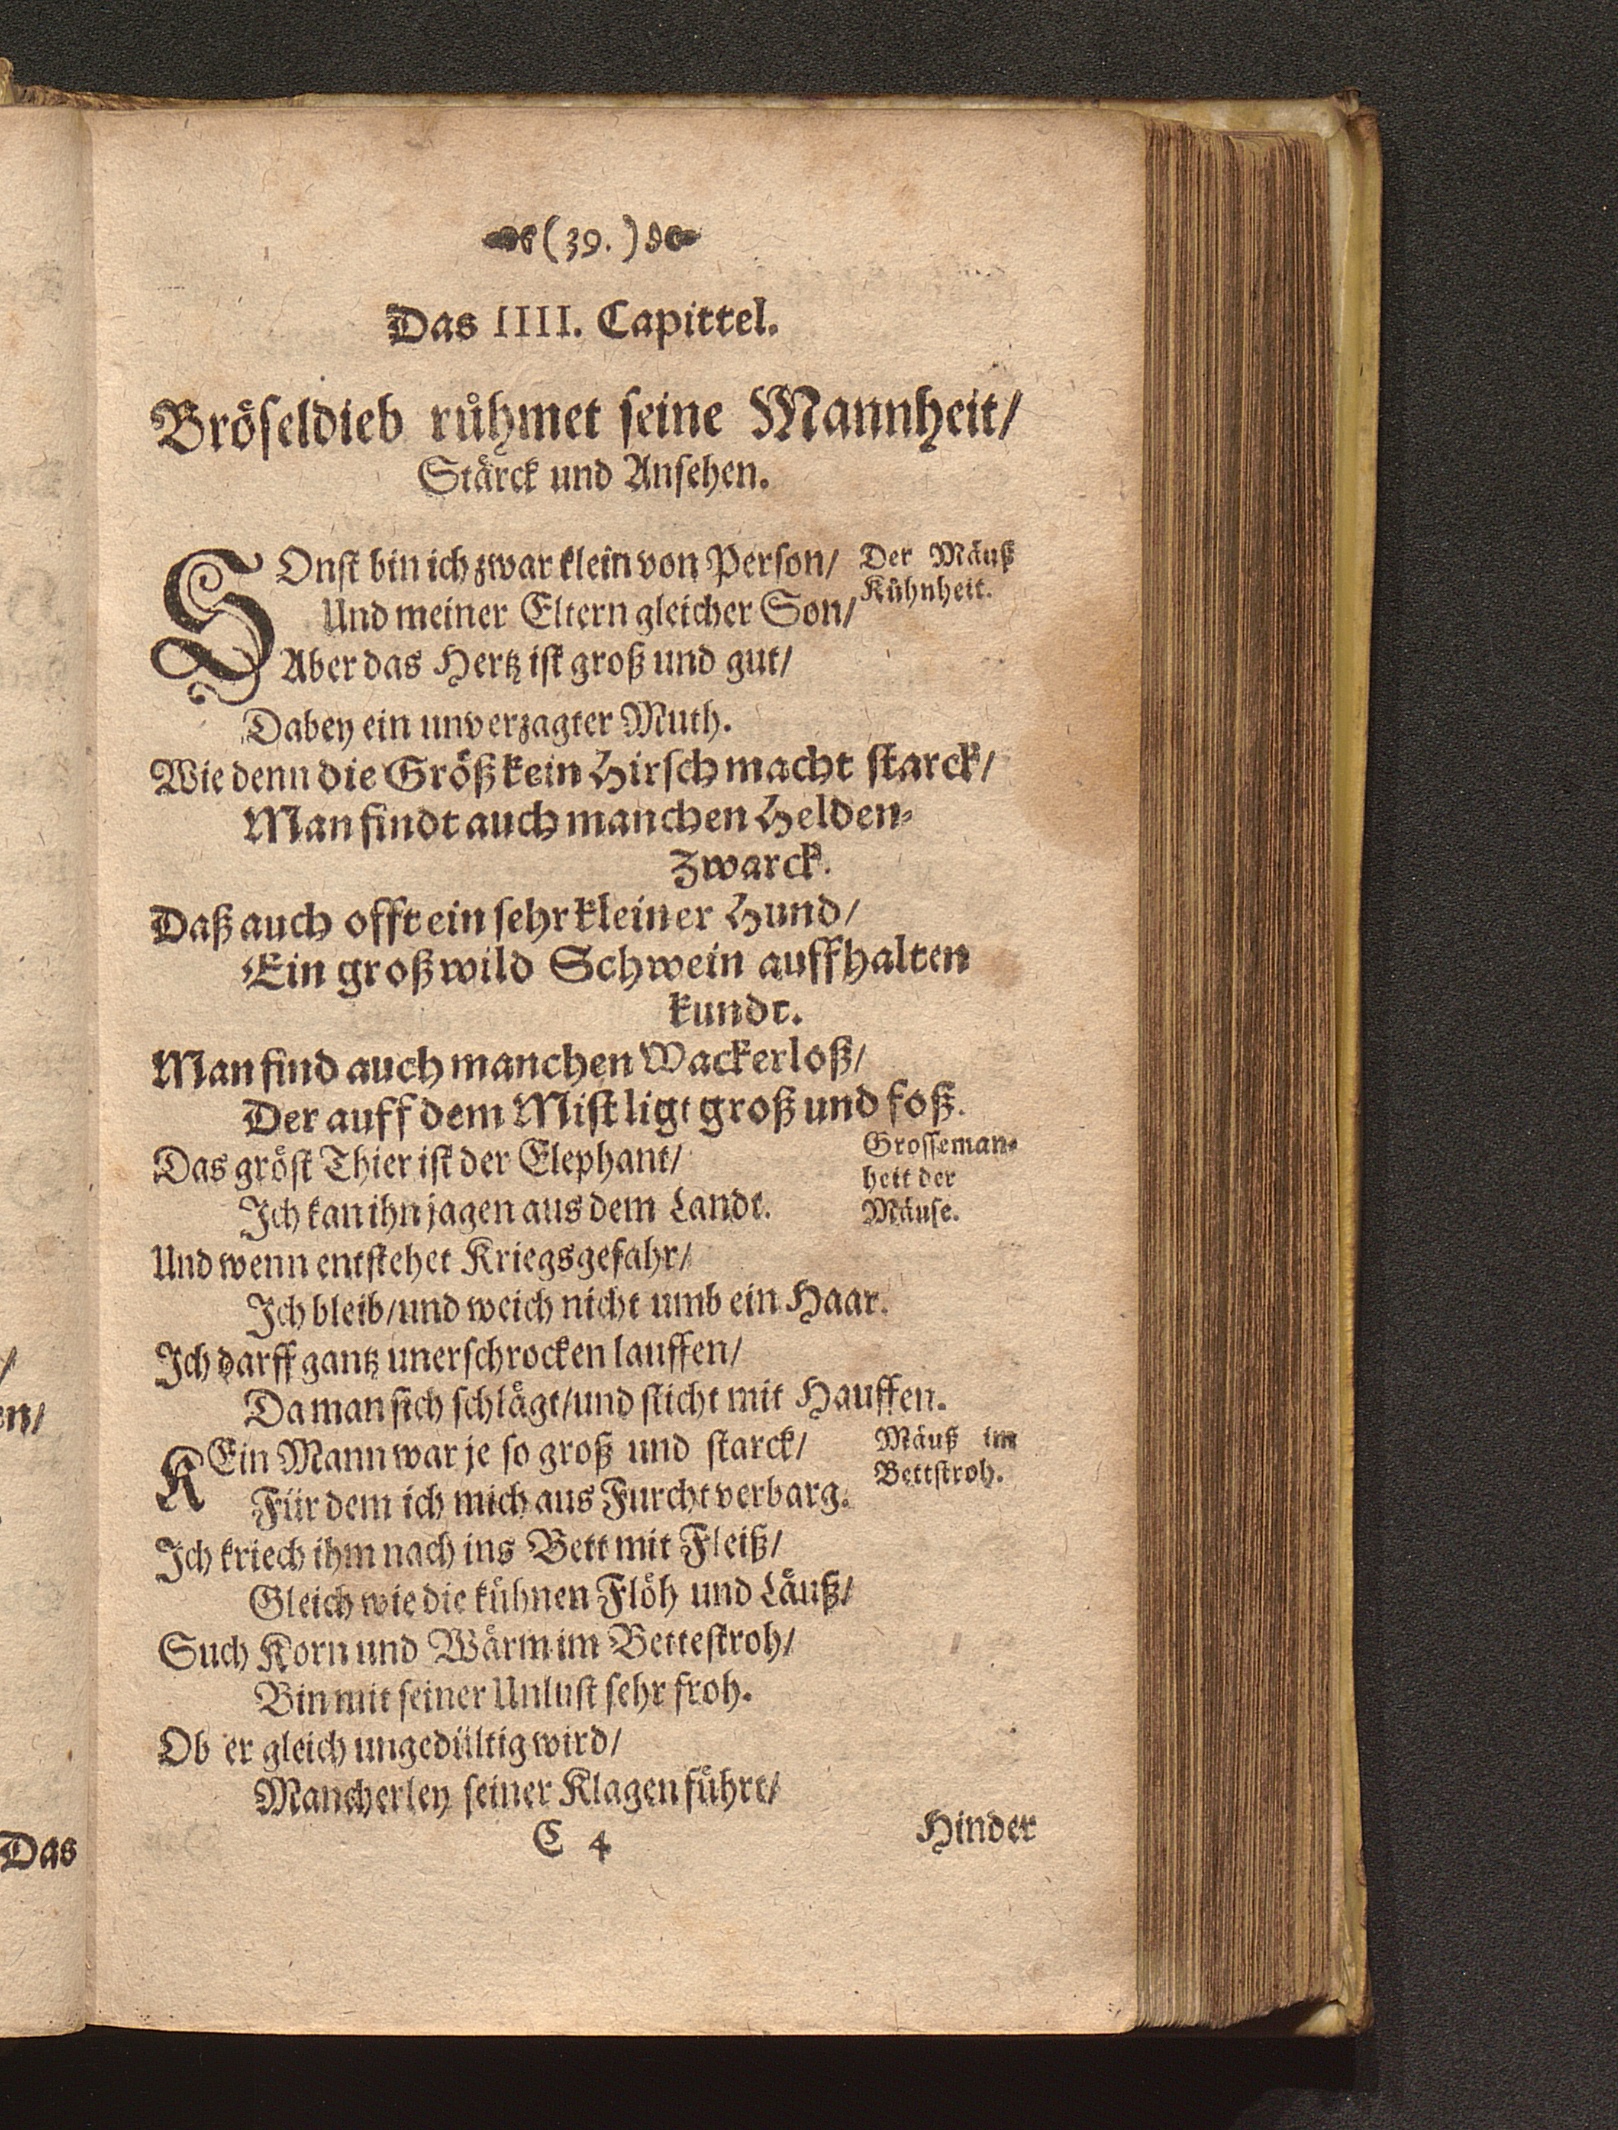 (39.)
Das IIII. Capittel.
Bröseldieb rühmet seine Mannheit/
Stärck und Ansehen.
SOnst bin ich zwar klein von Person/
Und meiner Eltern gleicher Son/
Aber das Hertz ist groß und gut/
Dabey ein unverzagter Muth.
Der Mäuß
Kühnheit.
Wie denn die Größ kein Hirsch macht starck/
Man findt auch manchen Helden-
Zwarck.
Daß auch offt ein sehr kleiner Hund/
Ein groß wild Schwein auffhalten
kundt.
Man find auch manchen Wackerloß/
Der auff dem Mist ligt groß und foß.
Das gröst Thier ist der Elephant/
Ich kan ihn jagen aus dem Landt.
Grosseman-
heit der
Mäuse.
Und wenn entstehet Kriegsgefahr/
Ich bleib/und weich nicht umb ein Haar.
Ich darff gantz unerschrocken lauffen/
Da man sich schlägt/und sticht mit Hauffen.
KEin Mann war je so groß und starck/
Für dem ich mich aus Furcht verbarg.
Mäuß im
Bettstroh.
Ich kriech ihm nach ins Bett mit Fleiß/
Gleich wie die kühnen Flöh und Läuß/
Such Korn und Wärm im Bettestroh/
Bin mit seiner Unlust sehr froh.
Ob er gleich ungedültig wird/
Mancherley seiner Klagen führt/
C 4
Hinder
en/
Das